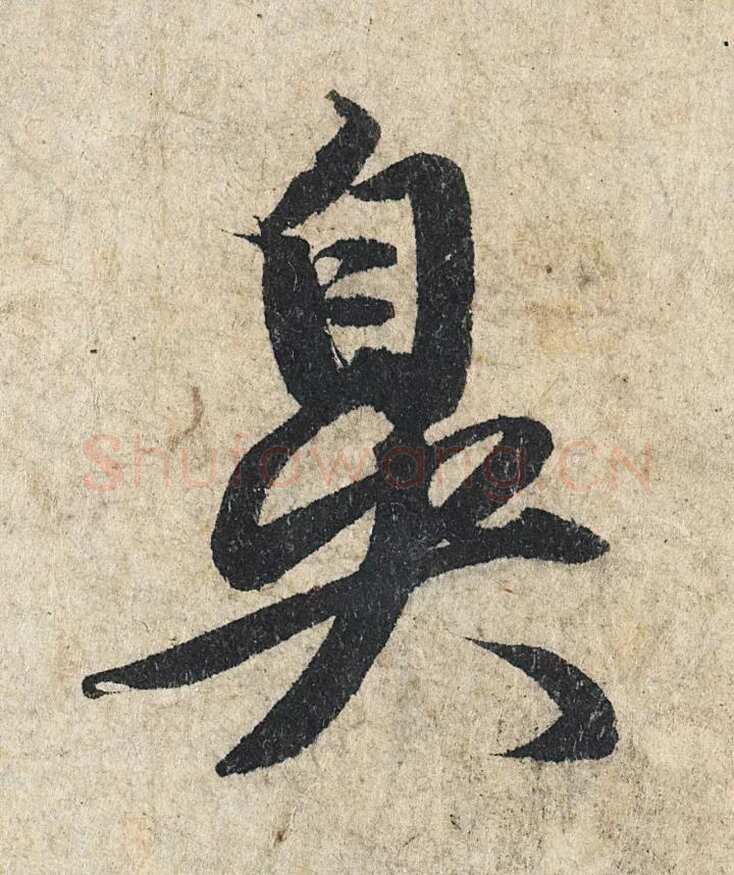 臯
Shufawang.CN